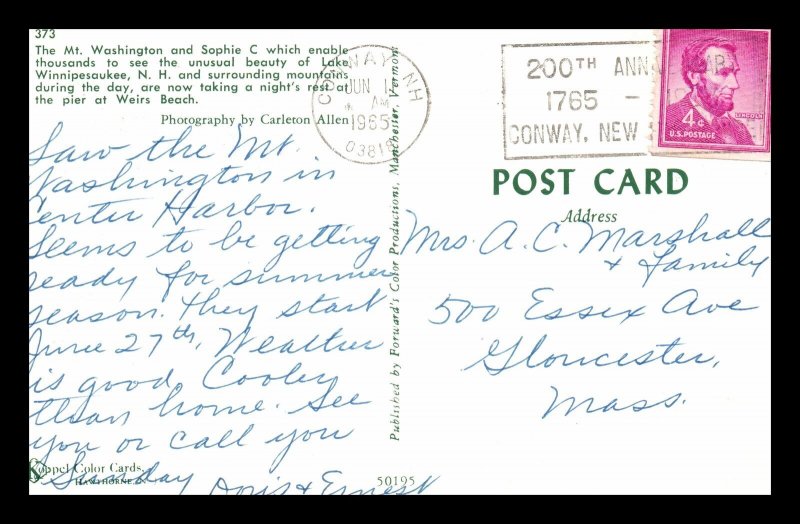 373
The Mt. Washington and Sophie C which enable
thousands to see the unusual beauty of Lake
Winnipesaukee, N. H. and surrounding mountains
during the day, are now taking a night's rest at
the pier at Weirs Beach.
Photography by Carleton Allen
Saw the Mt.
Washington in
Center Harbor.
Seems to be getting
ready for summer
season. They start
June 27th. Weather
is good. Cooler
than home. See
you or call you
Sunday
Doris & Ernest
Koppel Color Cards,
HAWTHORNE, N.
50195
Published by Forward's Color Productions, Manchester, Vermont
CONWAY NH
JUN 1
AM
1965
03818
200TH ANN
1765 –
CONWAY, NEW
4¢
LINCOLN
U.S. POSTAGE
POST CARD
Address
Mrs. A. C. Marshall
& family
500 Essex Ave
Gloucester,
Mass.